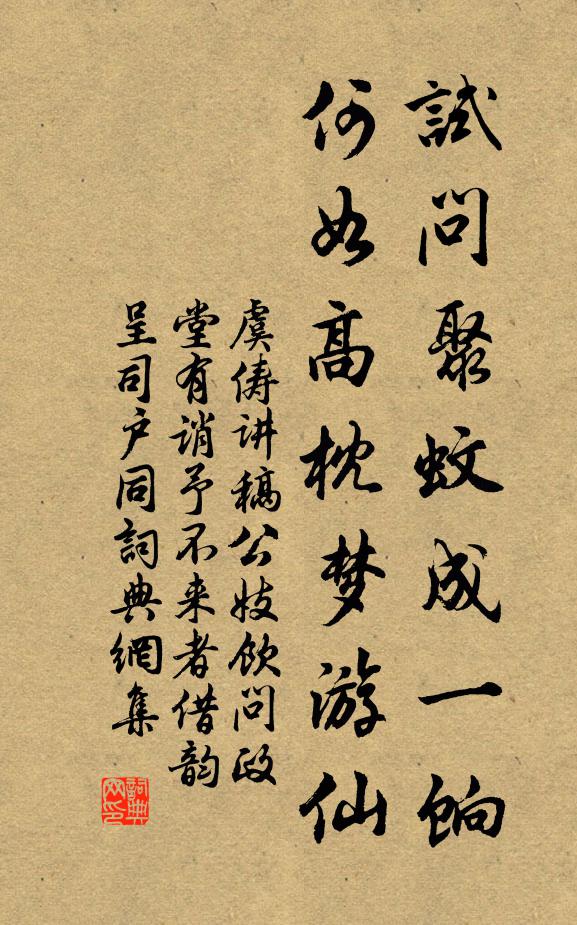 試問聚蚊成一餉
何如高枕梦游仙
虞俦讲稿公妓饮問政
堂有誚予不来者借韵
呈司户同詞典網集
詞典
网印